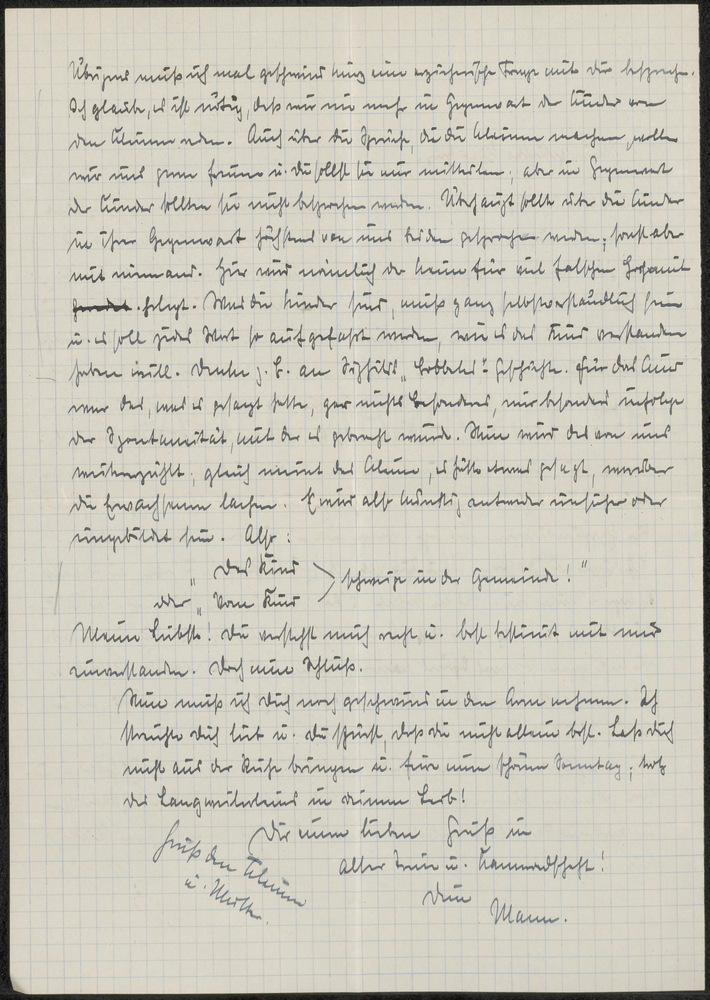 Übrigens muß ich mal geschwind kurz eine erzieherische Frage mit dir besprechen.
Ich glaube, es ist nötig, daß wir nie mehr in Gegenwart der Kinder von
den Kleinen reden. Auch über die Sprüche, die die Kleinen machen, wollen
wir uns gern freuen u. du sollst sie mir mitteilen; aber in Gegenwart
der Kinder sollten sie nicht besprochen werden. Überhaupt sollte über die Kinder
in ihrer Gegenwart höchstens von uns beiden gesprochen werden; sonst aber
mit niemand. Hier wird nämlich der Keim für viel falschen
gelegt. Was die Kinder sind, muß ganz selbstverständlich sein
u. es soll jedes Wort so aufgefaßt werden, wie es das Kind verstanden
haben will. Denke z. B. an Geschichte. Für das Kind
war das, was es gesagt hatte, gar nichts Besonderes, nur besonders infolge
der Spontaneität, mit der es gebracht wurde. Nun wird das von uns
weitererzählt; gleich meint das Kleine, es hätte etwas gesagt, worüber
die Erwachsenen lachen. Es wird also künftig entweder unsicher oder
eingebildet sein. Also:
„Das Kind
oder „Vom Kind schweige in der Gemeinde!"
Meine Liebste! Du verstehst mich recht u. bist bestimmt mit mir
einverstanden. Doch nun Schluß.
Nun muß ich dich noch geschwind in den Arm nehmen. Ich
streichle dich lieb u. du spürst, daß du nicht allein bist. Laß dich
nicht aus der Ruhe bringen u. feire einen schönen Sonntag; trotz
des in deinem Leib!
Dir einen lieben Gruß in
alter Treue u. Kameradschaft!
Dein
Mann.
Gruß den Kleinen
u. Mutter.